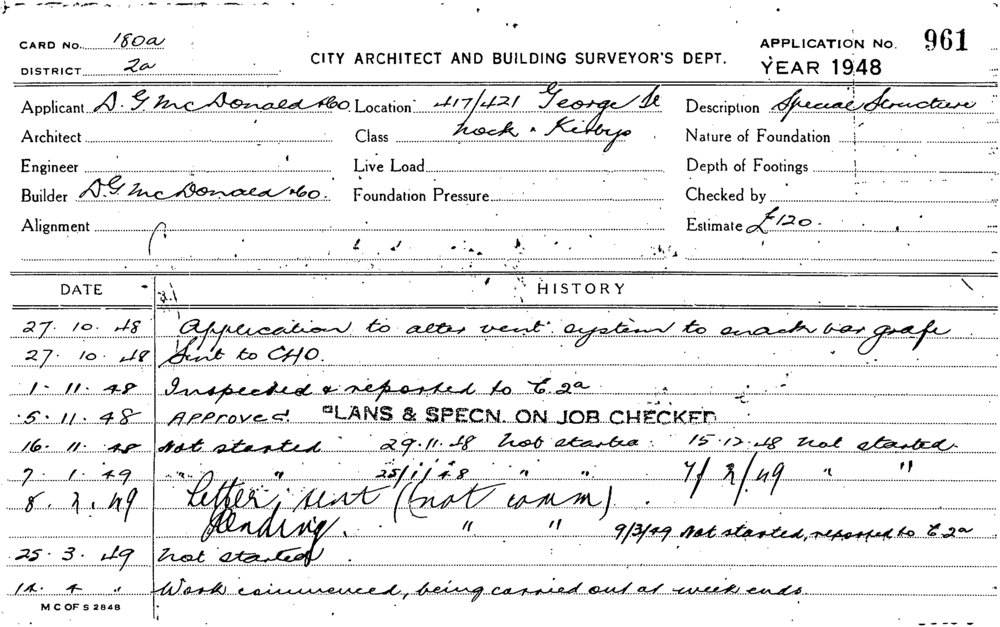 CARD No. 180a
DISTRICT 2a
CITY ARCHITECT AND BUILDING SURVEYOR'S DEPT.
APPLICATION NO. 961
YEAR 1948
Applicant D. G McDonald & Co Location 417/421 George St Description Special Structure
Architect Class Nock & Kirbys Nature of Foundation
Engineer Live Load Depth of Footings
Builder D. G. McDonald & Co. Foundation Pressure Checked by
Alignment Estimate £120.
DATE HISTORY
27. 10. 48 Application to alter vent. system to snack bar
27. 10. 48 Sent to CHO.
1. 11. 48 Inspected & reported to C. 2a
5. 11. 48 Approved PLANS & SPECN. ON JOB CHECKED
16. 11. 48 Not started 29.11.48 Not started. 15.12.48 Not started.
7. 1. 49 " " 25/1/48 " " 7/2/49 " "
8. 2. 49 Letter sent (not comm).
Pending. " " 9/3/49 Not started, reported to C. 2a
25. 3. 49 Not started
14. 4 " Work commenced, being carried out at week ends.
M C OF S 2848